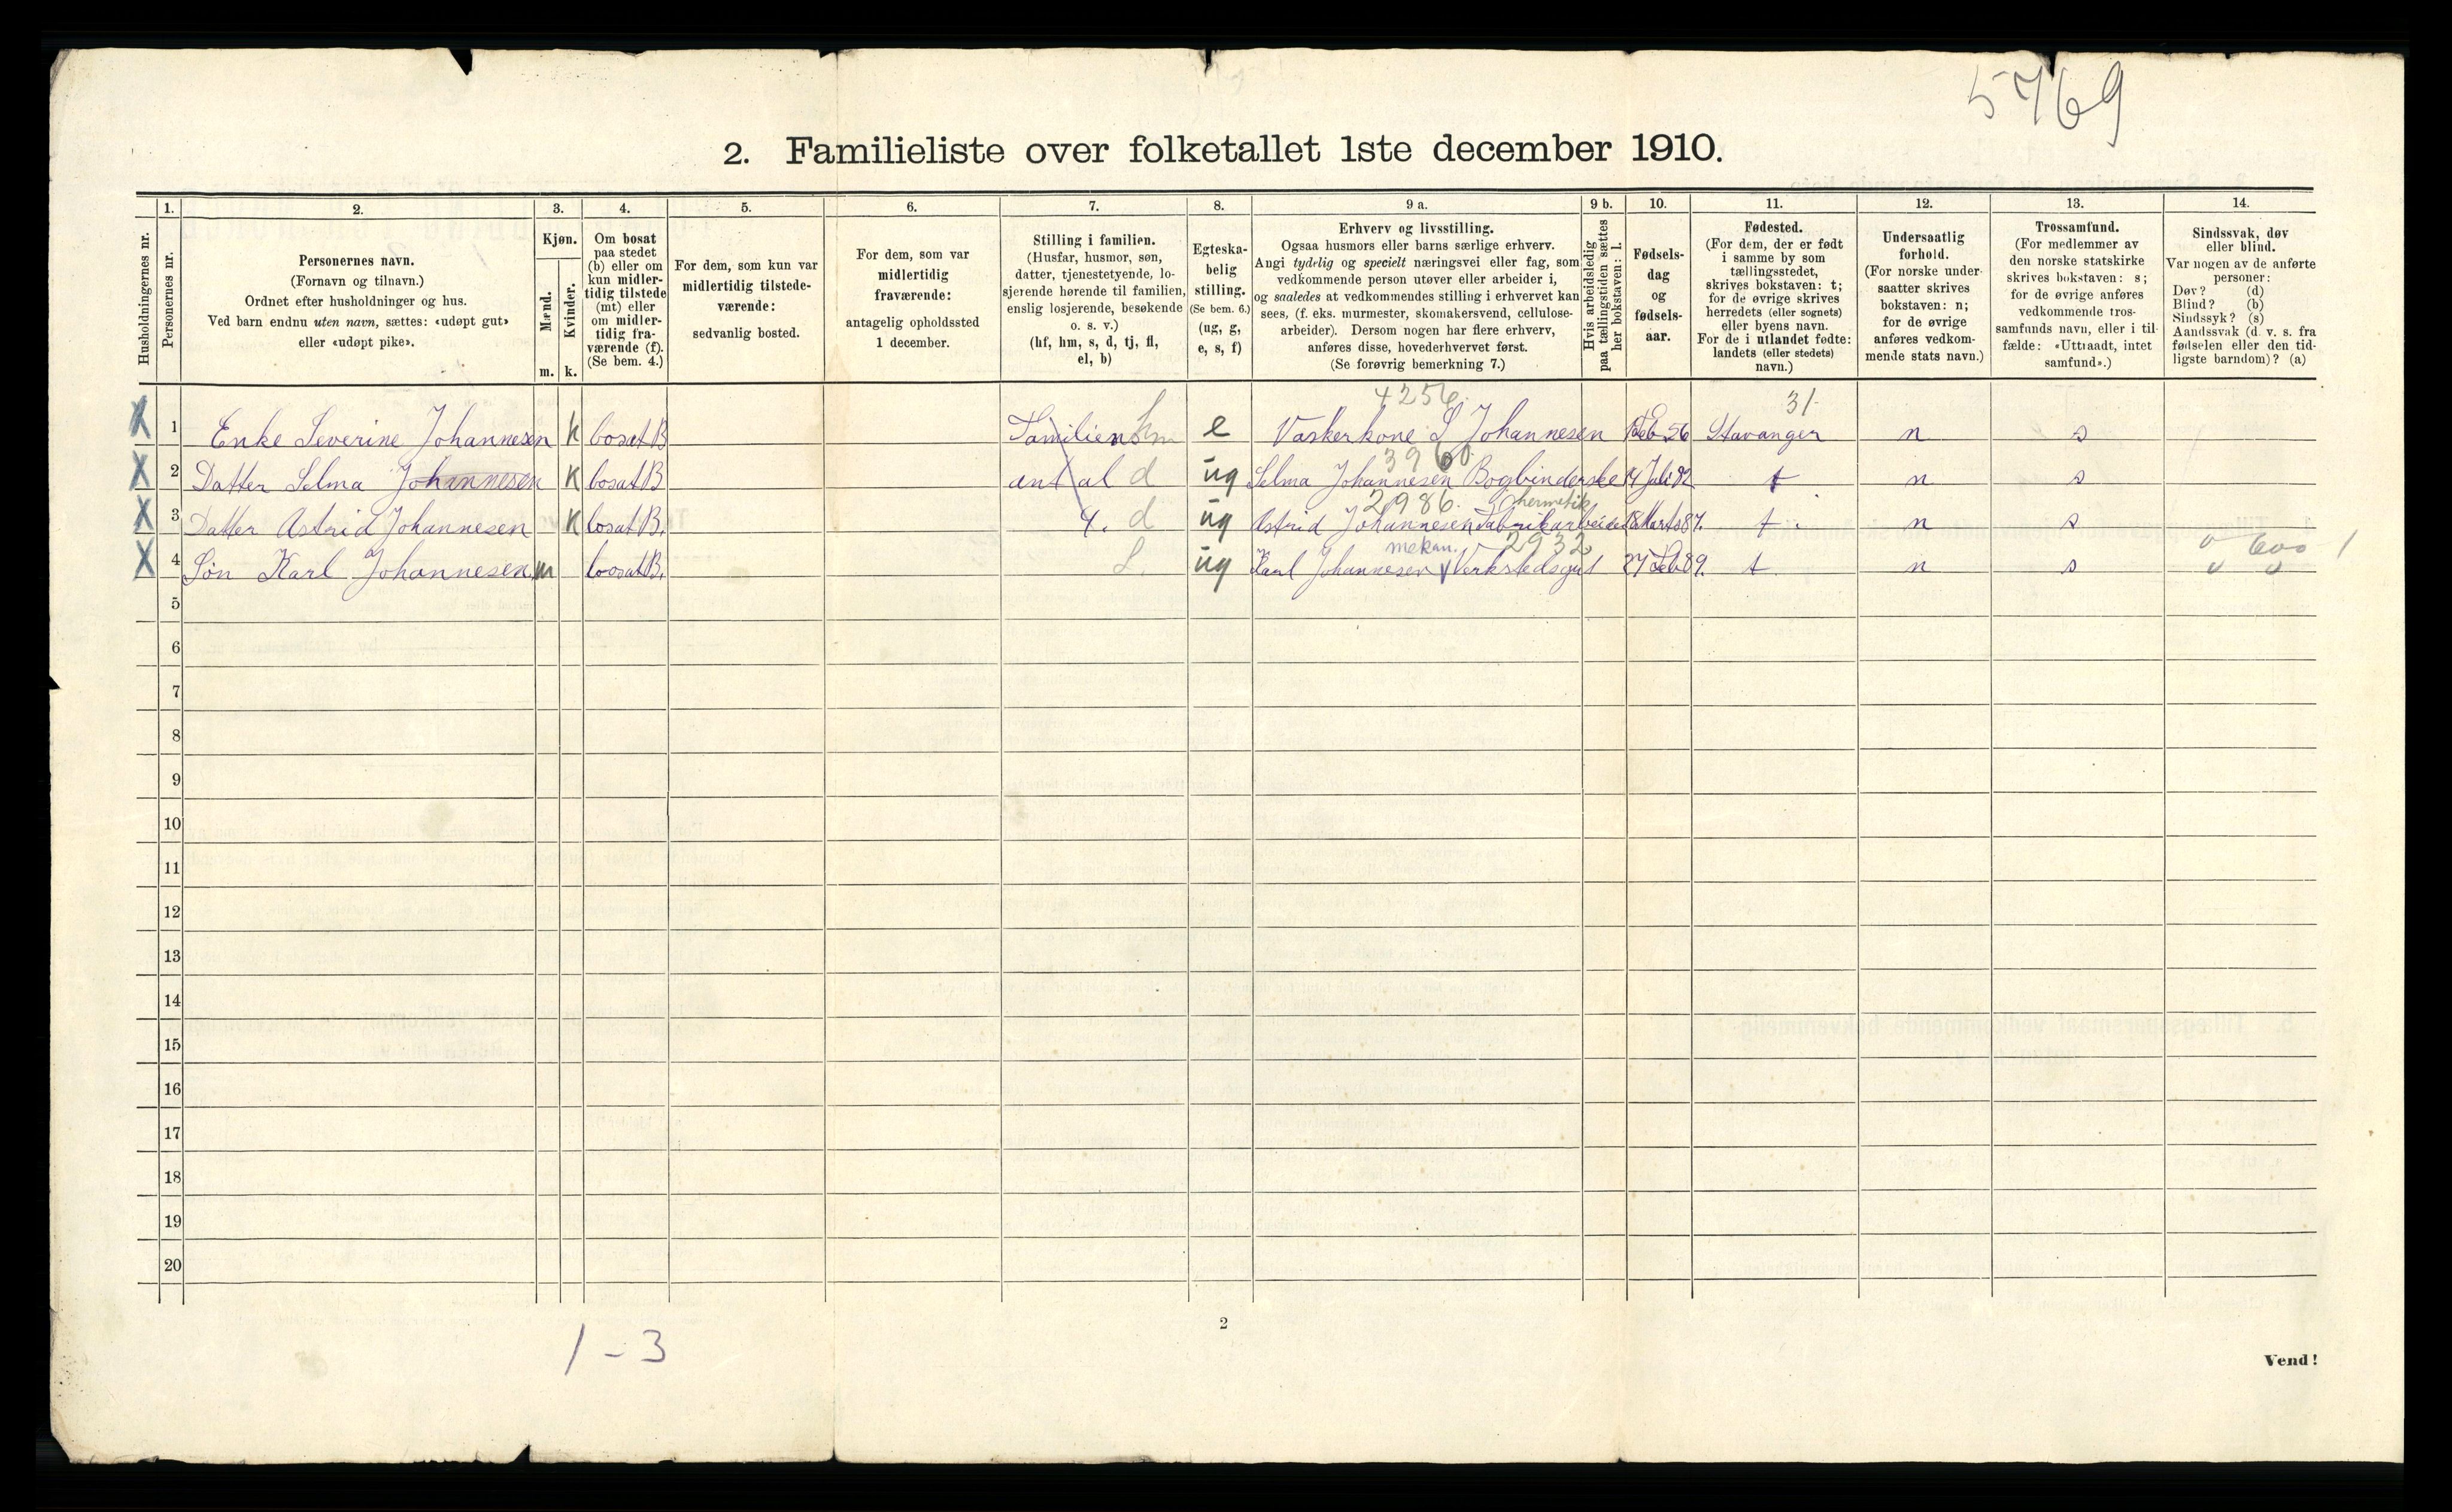 5769
2. Familieliste over folketallet 1ste december 1910.
Husholdningernes nr.
1.
Personernes nr.
2.
Personernes navn.
(Fornavn og tilnavn.)
Ordnet efter husholdninger og hus.
Ved barn endnu uten navn, sættes: «udøpt gut»
eller «udøpt pike».
3.
Kjøn.
Mænd.
Kvinder.
m. k.
4.
Om bosat
paa stedet
(b) eller om
kun midler-
tidig tilstede
(mt) eller
om midler-
tidig fra-
værende (f).
(Se bem. 4.)
5.
For dem, som kun var
midlertidig tilstede-
værende:
sedvanlig bosted.
6.
For dem, som var
midlertidig
fraværende:
antagelig opholdssted
1 december.
7.
Stilling i familien.
(Husfar, husmor, søn,
datter, tjenestetyende, lo-
sjerende hørende til familien,
enslig losjerende, besøkende
o. s. v.)
(hf, hm, s, d, tj, fl,
el, b)
8.
Egteska-
belig
stilling.
(Se bem. 6.)
(ug, g,
e, s, f)
9 a.
Erhverv og livsstilling.
Ogsaa husmors eller barns særlige erhverv.
Angi tydelig og specielt næringsvei eller fag, som
vedkommende person utøver eller arbeider i,
og saaledes at vedkommendes stilling i erhvervet kan
sees, (f. eks. murmester, skomakersvend, cellulose-
arbeider). Dersom nogen har flere erhverv,
anføres disse, hovederhvervet først.
(Se forøvrig bemerkning 7.)
9 b.
Hvis arbeidsledig
paa tællingstiden sættes
her bokstaven: l.
10.
Fødsels-
dag
og
fødsels-
aar.
11.
Fødested.
(For dem, der er født
i samme by som
tællingsstedet,
skrives bokstaven: t;
for de øvrige skrives
herredets (eller sognets)
eller byens navn.
For de i utlandet fødte:
landets (eller stedets)
navn.)
12.
Undersaatlig
forhold.
(For norske under-
saatter skrives
bokstaven: n;
for de øvrige
anføres vedkom-
mende stats navn.)
13.
Trossamfund.
(For medlemmer av
den norske statskirke
skrives bokstaven: s;
for de øvrige anføres
vedkommende tros-
samfunds navn, eller i til-
fælde: «Uttraadt, intet
samfund».)
14.
Sindssvak, døv
eller blind.
Var nogen av de anførte
personer:
Døv? (d)
Blind? (b)
Sindssyk? (s)
Aandssvak (d. v. s. fra
fødselen eller den tid-
ligste barndom)? (a)
4256. 31.
X 1 Enke Severine Johannesen k bosat B Familiens hm e Vaskerkone S Johannesen Feb 56 Stavanger n s
3960
X 2 Datter Selma Johannesen k bosat B antal d ug Selma Johannesen Bogbinderske 14 Juli 82 t n s
2986. hermetik
X 3 Datter Astrid Johannesen k bosat B. 4. d ug Astrid Johannesen Fabrikarbeider 18 Marts 87. t. n s
mekan. 2932 0 600 1
X 4 Søn Karl Johannesen m bosat B. S. ug Karl Johannesen V Verkstedsgut 27 Feb 89. t. n s 0 0
5
6
7
8
9
10
11
12
13
14
15
16
17
18
19
20
1 - 3
2
Vend!